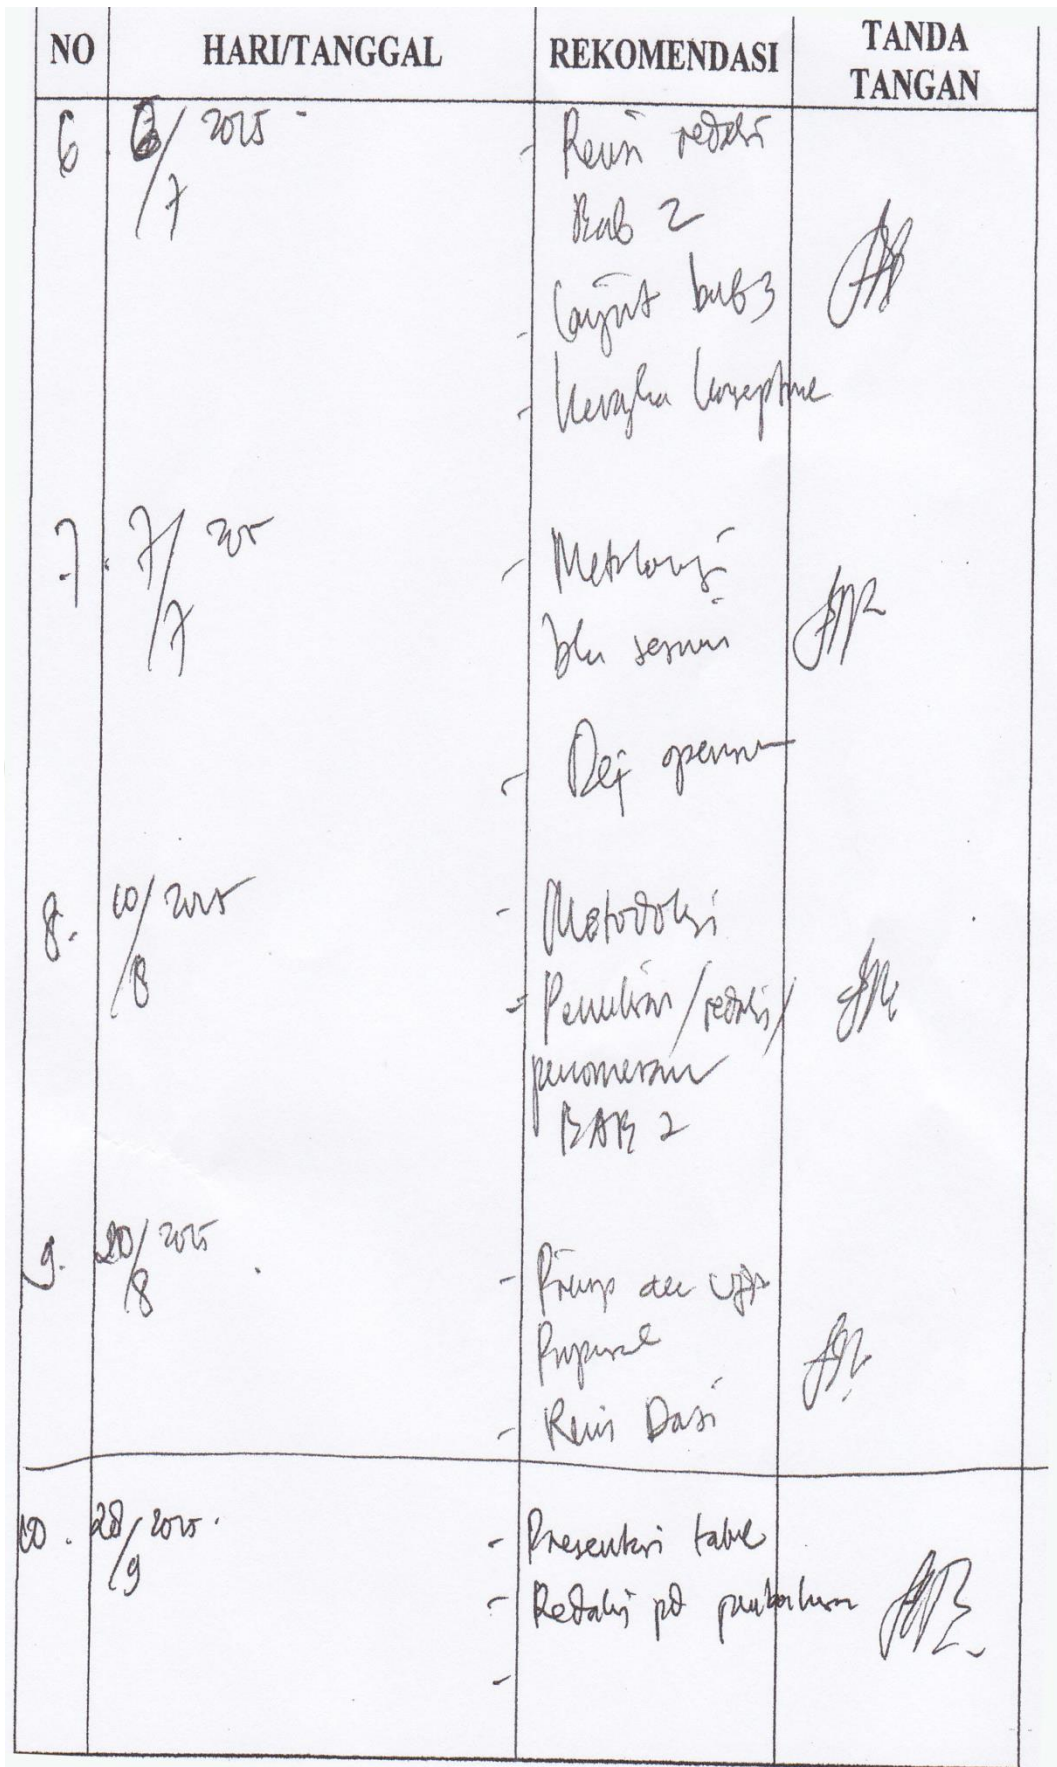 NO HARI/TANGGAL REKOMENDASI TANDA TANGAN
6 6/7 2015 - Revisi redaksi
Bab 2
- Lanjut bab 3
- Kerangka konseptual
7. 7/7 2015 - Metodologi
sesuai
- Def
8. 10/8 2015 - Metodologi
- Penulisan/redaksi/
penomeran
BAB 2
9. 20/8 2015 - Prinsip acc uji
Proposal
- Revisi
10. 28/9 2015. - Presentasi tabel
- Redaksi pd pembahasan
-